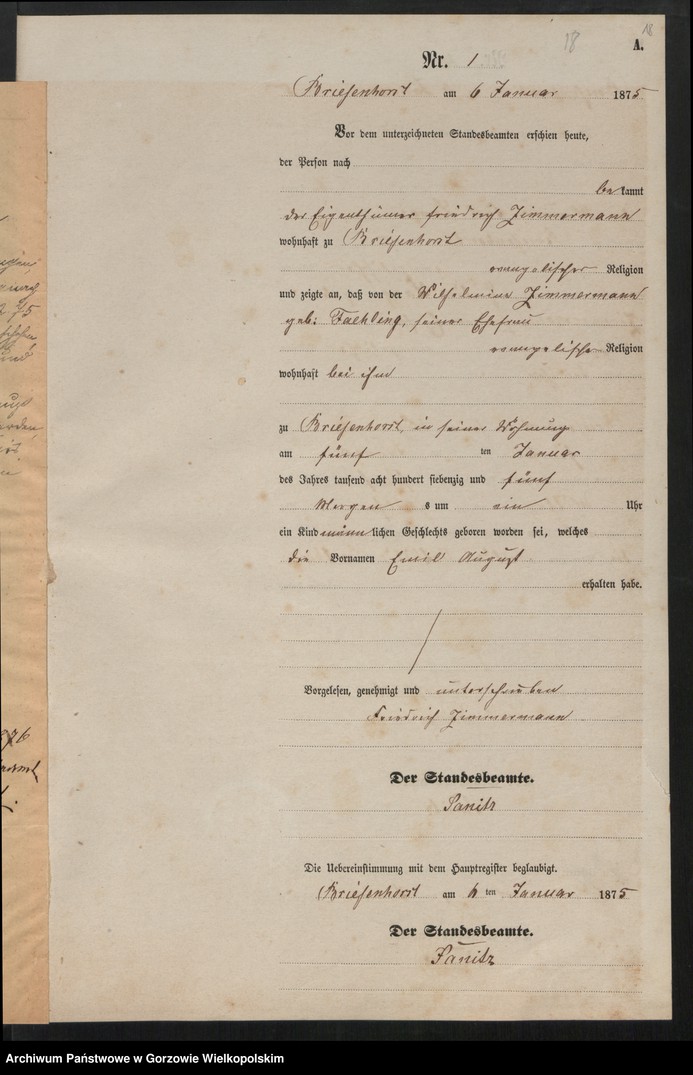 18
18
A.
Nr. 1
Briesenhorst am 6 Januar 1875
Vor dem unterzeichneten Standesbeamten erschien heute,
der Person nach
bekannt
der Eigenthümer Friedrich Zimmermann
wohnhaft zu Briesenhorst
evangelischer Religion
und zeigte an, daß von der Wilhelmine Zimmermann
geb: Faehling, seiner Ehefrau
evangelischer Religion
wohnhaft bei ihm
zu Briesenhorst, in seiner Wohnung
am fünf ten Januar
des Jahres tausend acht hundert siebenzig und fünf
Morgen s um ein Uhr
ein Kind männlichen Geschlechts geboren worden sei, welches
die Vornamen Emil August
erhalten habe.
Vorgelesen, genehmigt und unterschrieben
Friedrich Zimmermann
Der Standesbeamte.
Panitz
Die Uebereinstimmung mit dem Hauptregister beglaubigt.
Briesenhorst am 6 ten Januar 1875
Der Standesbeamte.
Panitz
Archiwum Państwowe w Gorzowie Wielkopolskim